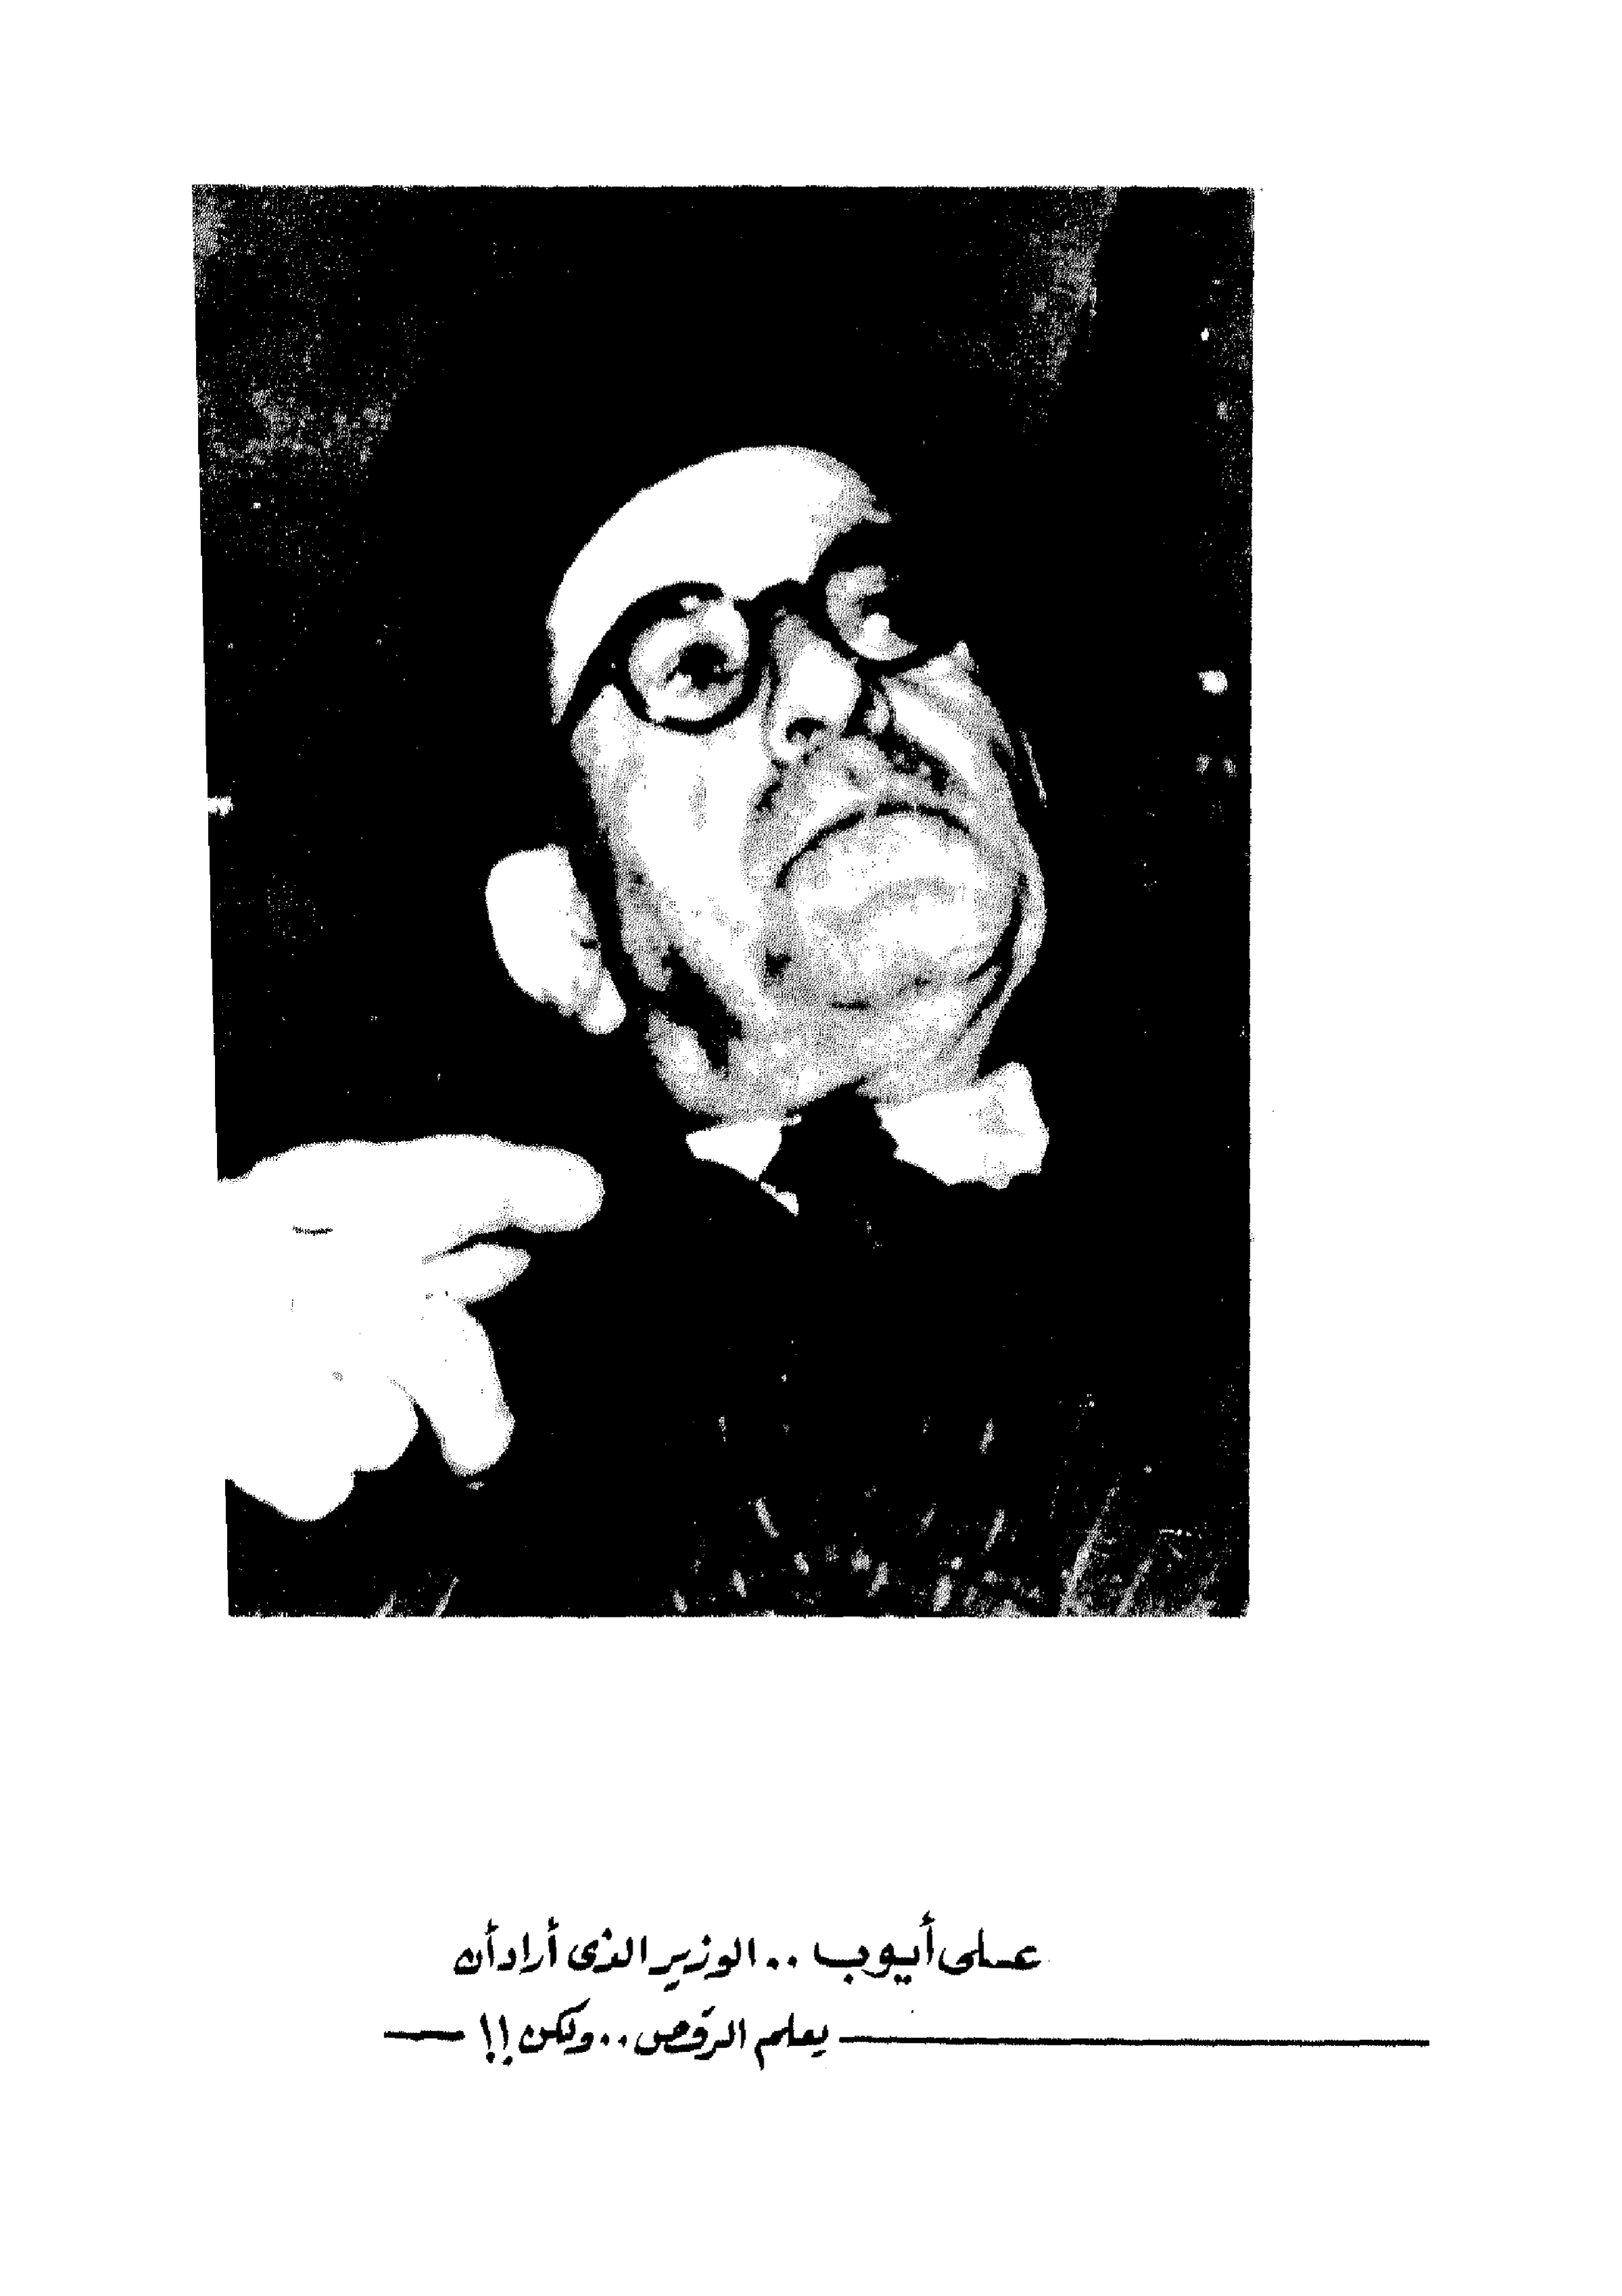 على أيوب .. الوزير الذى أراد أن
يعلم الرقص .. ولكن !!